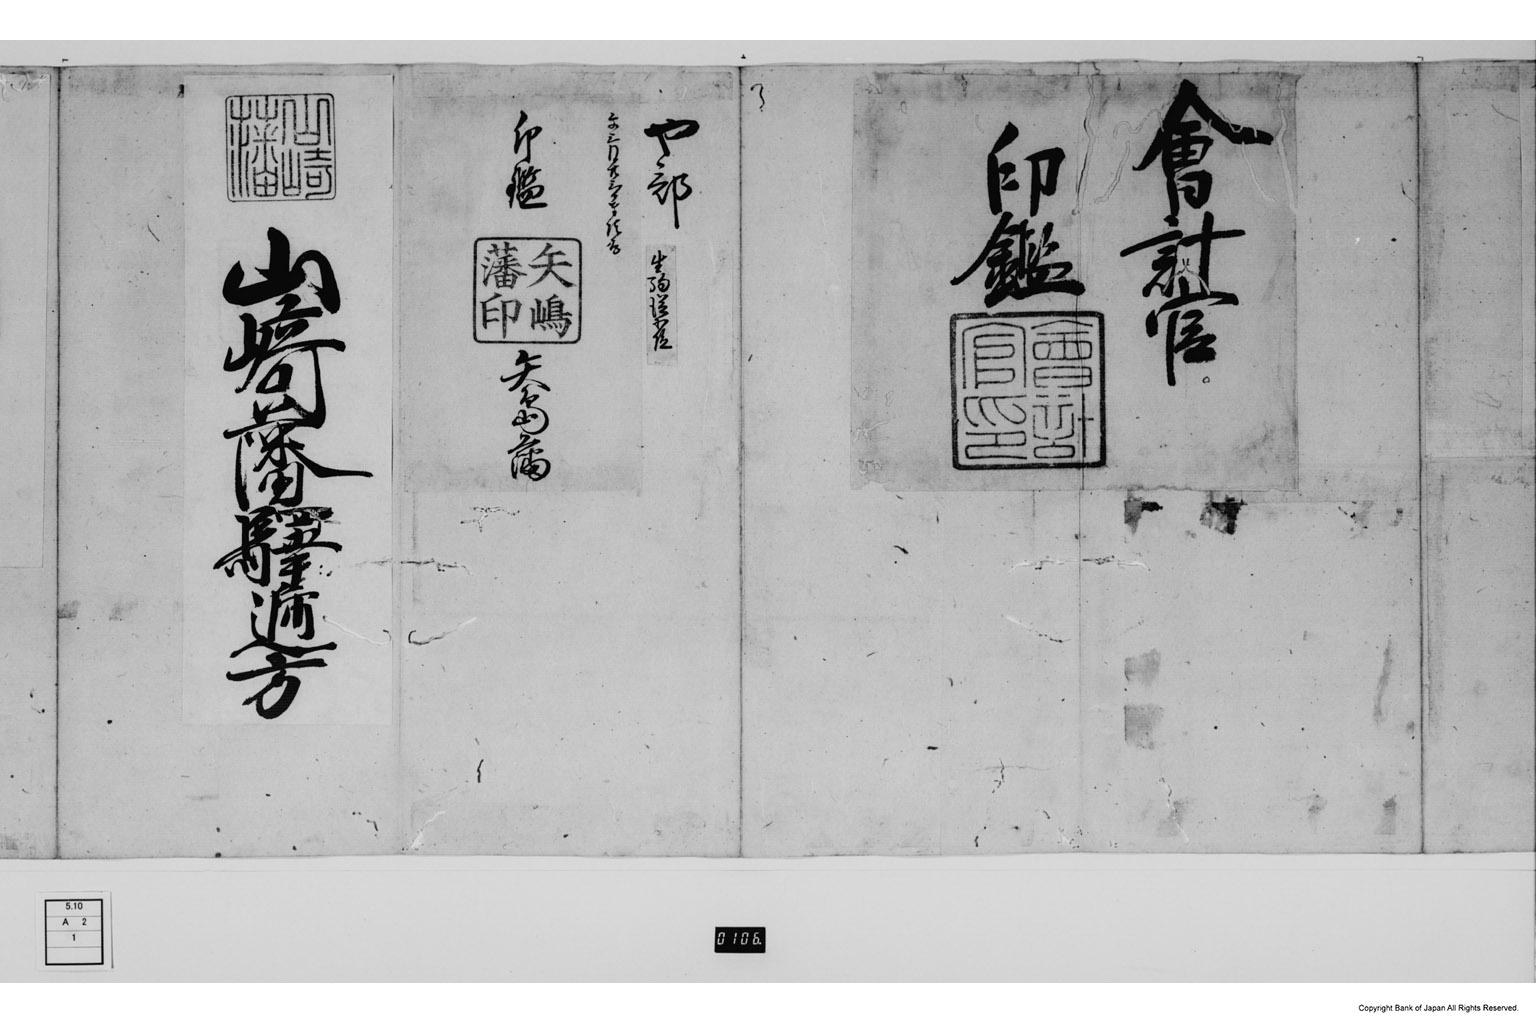 會計官
印鑑
會計官印
や部
生駒
印鑑
矢嶋藩印
矢島藩
山崎藩
山崎藩驛逓方
5.10
A 2
1
0106
Copyright Bank of Japan All Rights Reserved.